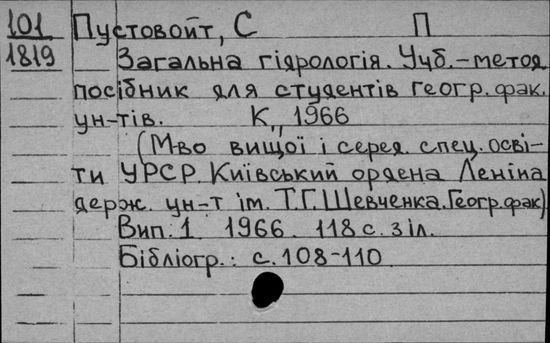 101 Пустовойт, С П
1819 Загальна гідрологія. Учб.-метод
посібник для студентів геогр. фак.
ун-тів. К., 1966
(М-во вищої і серед. спец. осві-
ти УРСР. Київський ордена Леніна
держ. ун-т ім. Т.Г. Шевченка. Геогр. фак)
Вип. 1 1966. 118 с. з іл.
Бібліогр.: с. 108-110